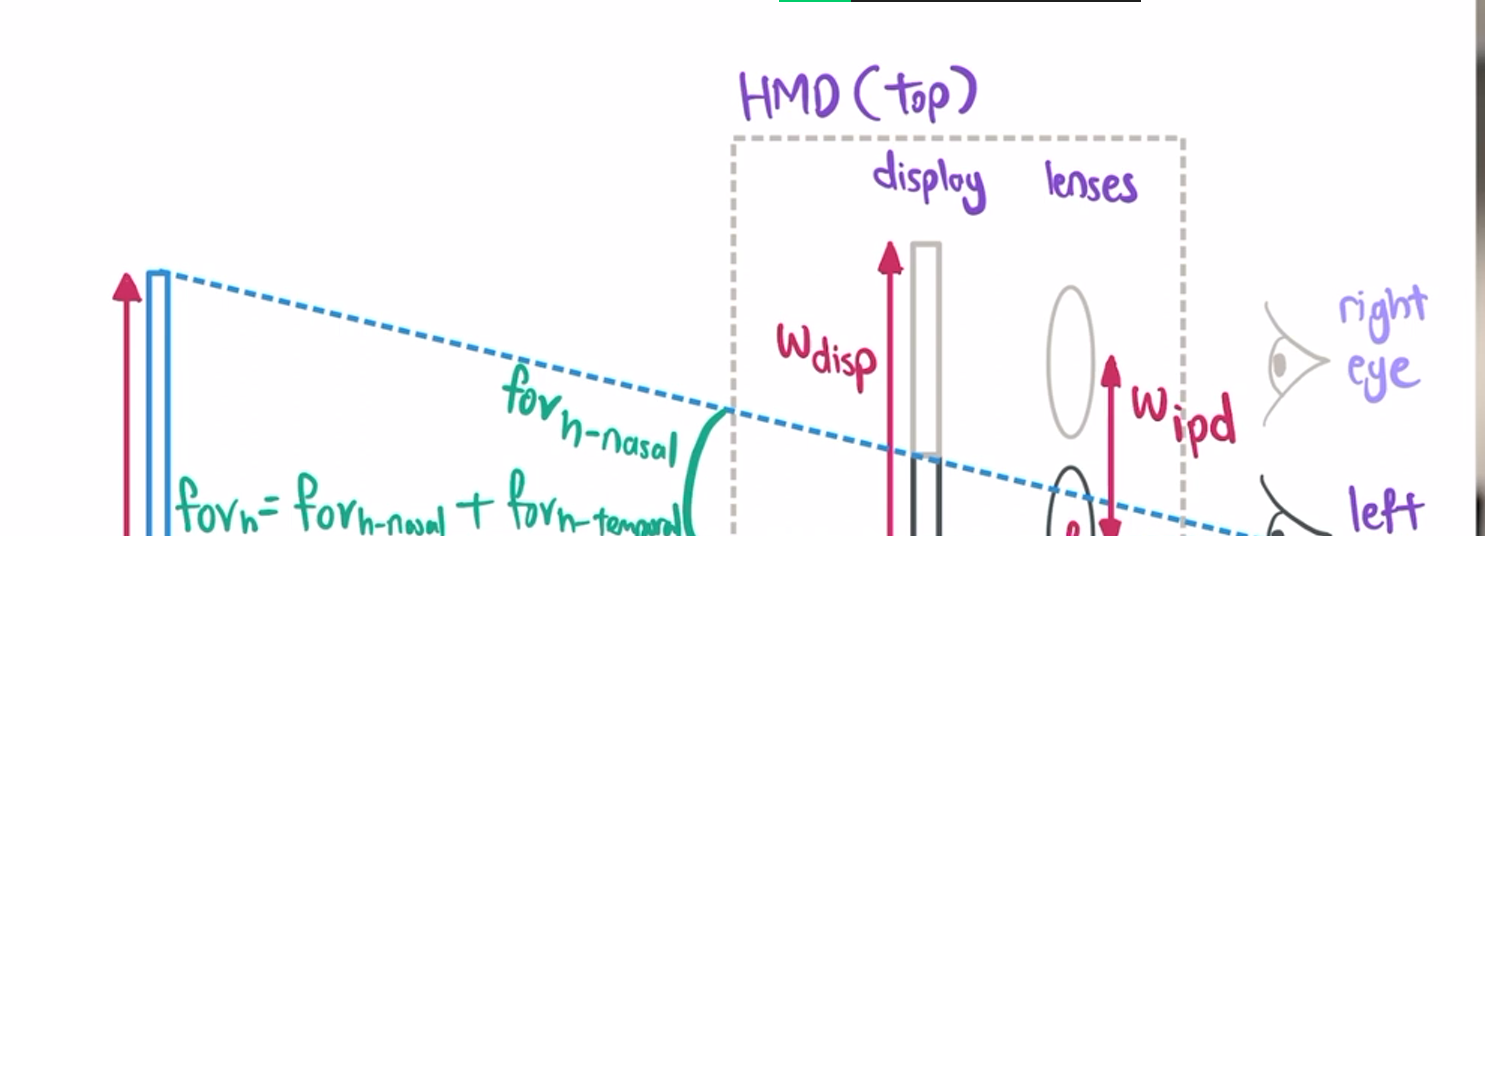 HMD (top)
display
lenses
Wdisp
Wipd
right
eye
left
fovh-nasal
fovh = fovh-nasal + fovh-temporal